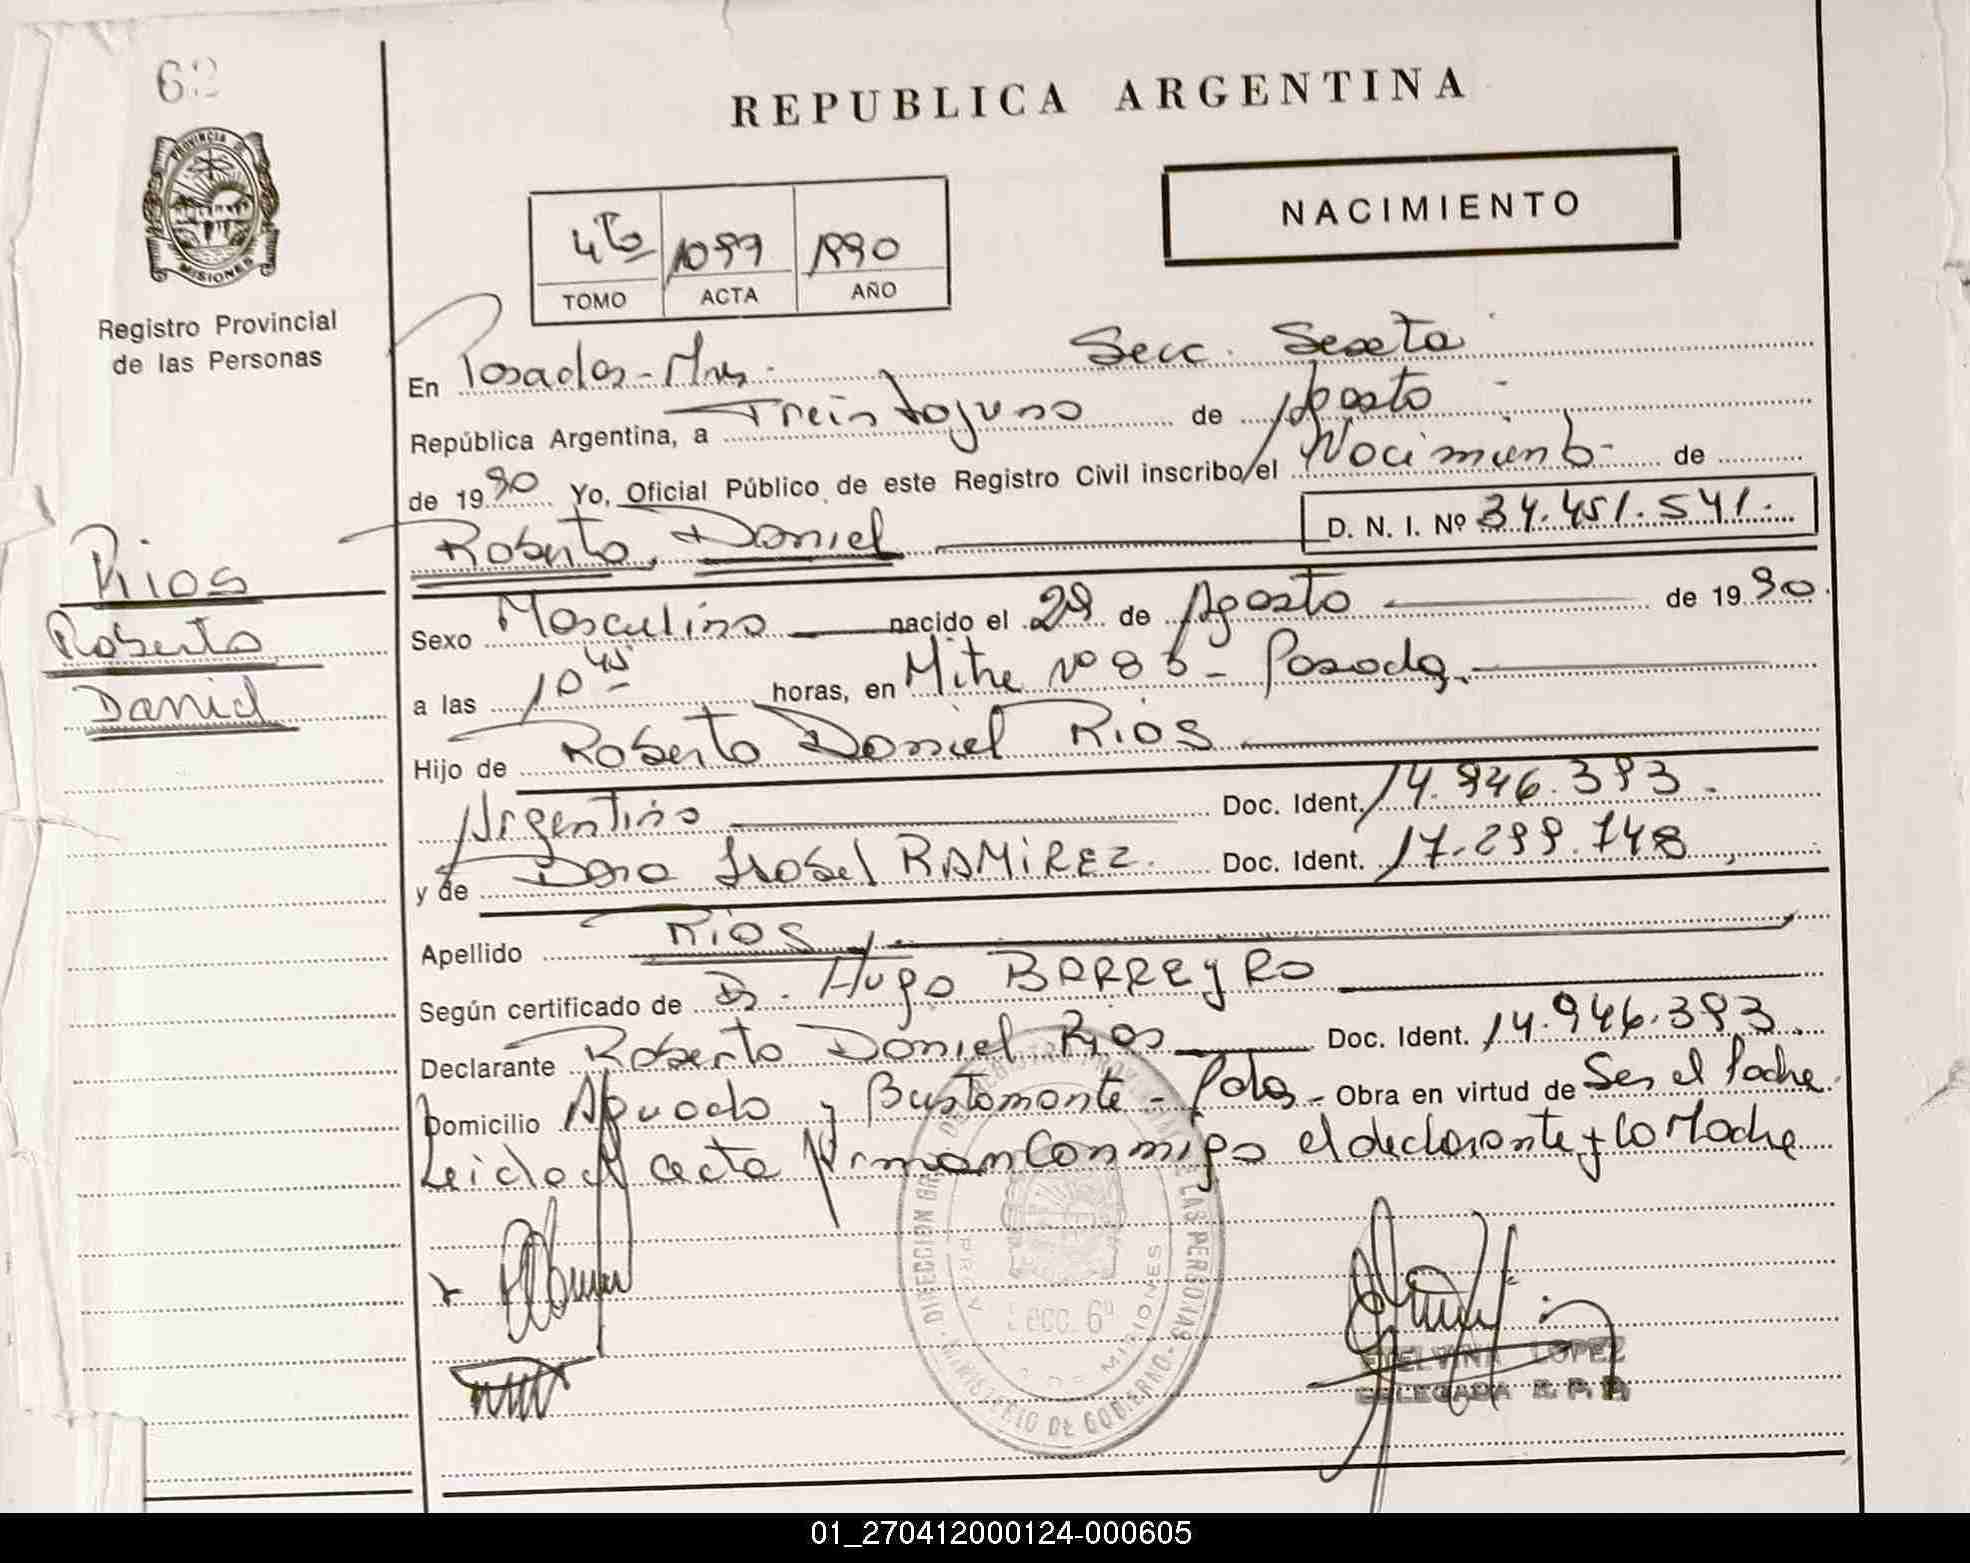 62
REPUBLICA ARGENTINA
PROVINCIA DE
MISIONES
NACIMIENTO
4to 1097 1990
TOMO ACTA AÑO
Registro Provincial
de las Personas
En Posadas-Mnes. Secc. Sexta
República Argentina, a Treintayuno de Agosto
de 1990 Yo, Oficial Público de este Registro Civil inscribo el Nacimiento de
Roberto, Daniel D. N. I. Nº 34.451.541.
Rios
Roberto
Daniel
Sexo Masculino nacido el 29 de Agosto de 1990
a las 10 45 horas, en Mitre Nº 83 - Posadas.
Hijo de Roberto Daniel Rios
Argentino Doc. Ident. 14.946.393.
y de Dora Isabel RAMIREZ. Doc. Ident. 17.299.748
Apellido Rios
Según certificado de Dr. Hugo BARREyRO
Declarante Roberto Daniel Rios Doc. Ident. 14.946.393.
Domicilio Aguado y Bustamante - Pdas - Obra en virtud de Ser el Padre
Leida el acta firman conmigo el declarante y la Madre
DIRECCION GRAL DE REGISTRO PROVINCIAL DE LAS PERSONAS
MINISTERIO DE GOBIERNO
MISIONES
Secc. 6ª
ETELVINA LOPEZ
DELEGADA R. P. P.
01_270412000124-000605